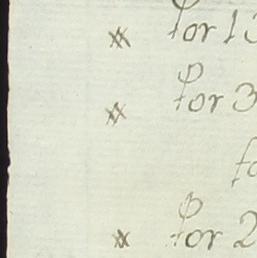 * For 13
* For 3
fo
* For 2